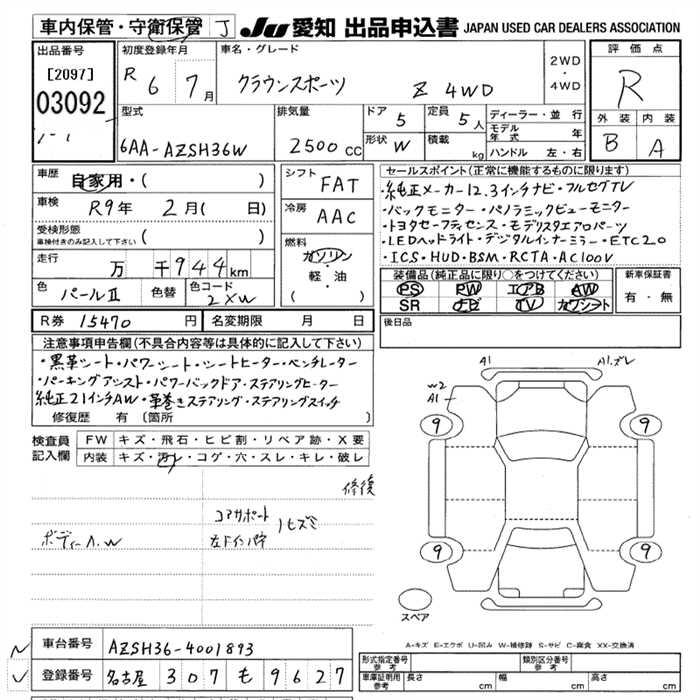 車内保管・守衛保管 J
JU 愛知 出品申込書 JAPAN USED CAR DEALERS ASSOCIATION
出品番号
[2097]
03092
初度登録年月
R 6 7月
車名・グレード
クラウンスポーツ Z 4WD
2WD
・
4WD
評価点
R
外装 内装
B A
型式
6AA-AZSH36W
排気量
2500 CC
ドア 5
定員 5人
形状 W
積載 kg
ディーラー・並行
モデル年式 年
ハンドル 左・右
車歴 自家用・( )
車検 R9年 2月( 日)
受検形態
車検付きのみ記入して下さい ( )
走行 万 千944km
色 パールII 色替 色コード 2XW
シフト FAT
冷房 AAC
燃料
ガソリン
・軽・油
( )
セールスポイント(正常に機能するものに限ります)
・純正メーカー12.3インチナビ・フルセグTV
・バックモニター・パノラミックビューモニター
・トヨタセーフティセンス・モデリスタエアロパーツ
・LEDヘッドライト・デジタルインナーミラー・ETC2.0
・ICS・HUD・BSM・RCTA・AC100V
装備品(純正品に限り○をつけてください)
PS PW エアB AW
SR ナビ TV カワシート
新車保証書
有・無
R券 15470 円 名変期限 月 日
後日品
注意事項申告欄(不具合内容等は具体的に記入して下さい)
・黒革シート・パワーシート・シートヒーター・ベンチレーター
・パーキングアシスト・パワーバックドア・ステアリングヒーター
純正21インチAW・革巻きステアリング・ステアリングスイッチ
修復歴 有 (箇所 )
検査員記入欄
FW キズ・飛石・ヒビ割・リペア跡・X要
内装 キズ・汚レ・コゲ・穴・スレ・キレ・破レ
修復
コアサポート
左ドインパネ
ボディーA.W
A1 A1.ズレ
W2
A1
9 9
9 9
スペア
A-キズ E-エクボ U-凹み W-補修跡 S-サビ C-腐食 XX-交換済
車台番号 AZSH36-4001893
登録番号 名古屋 307 も 9627
型式指定番号 参考 類別区分番号 参考
車庫証明用 参考 長さ cm 幅 cm 高さ cm